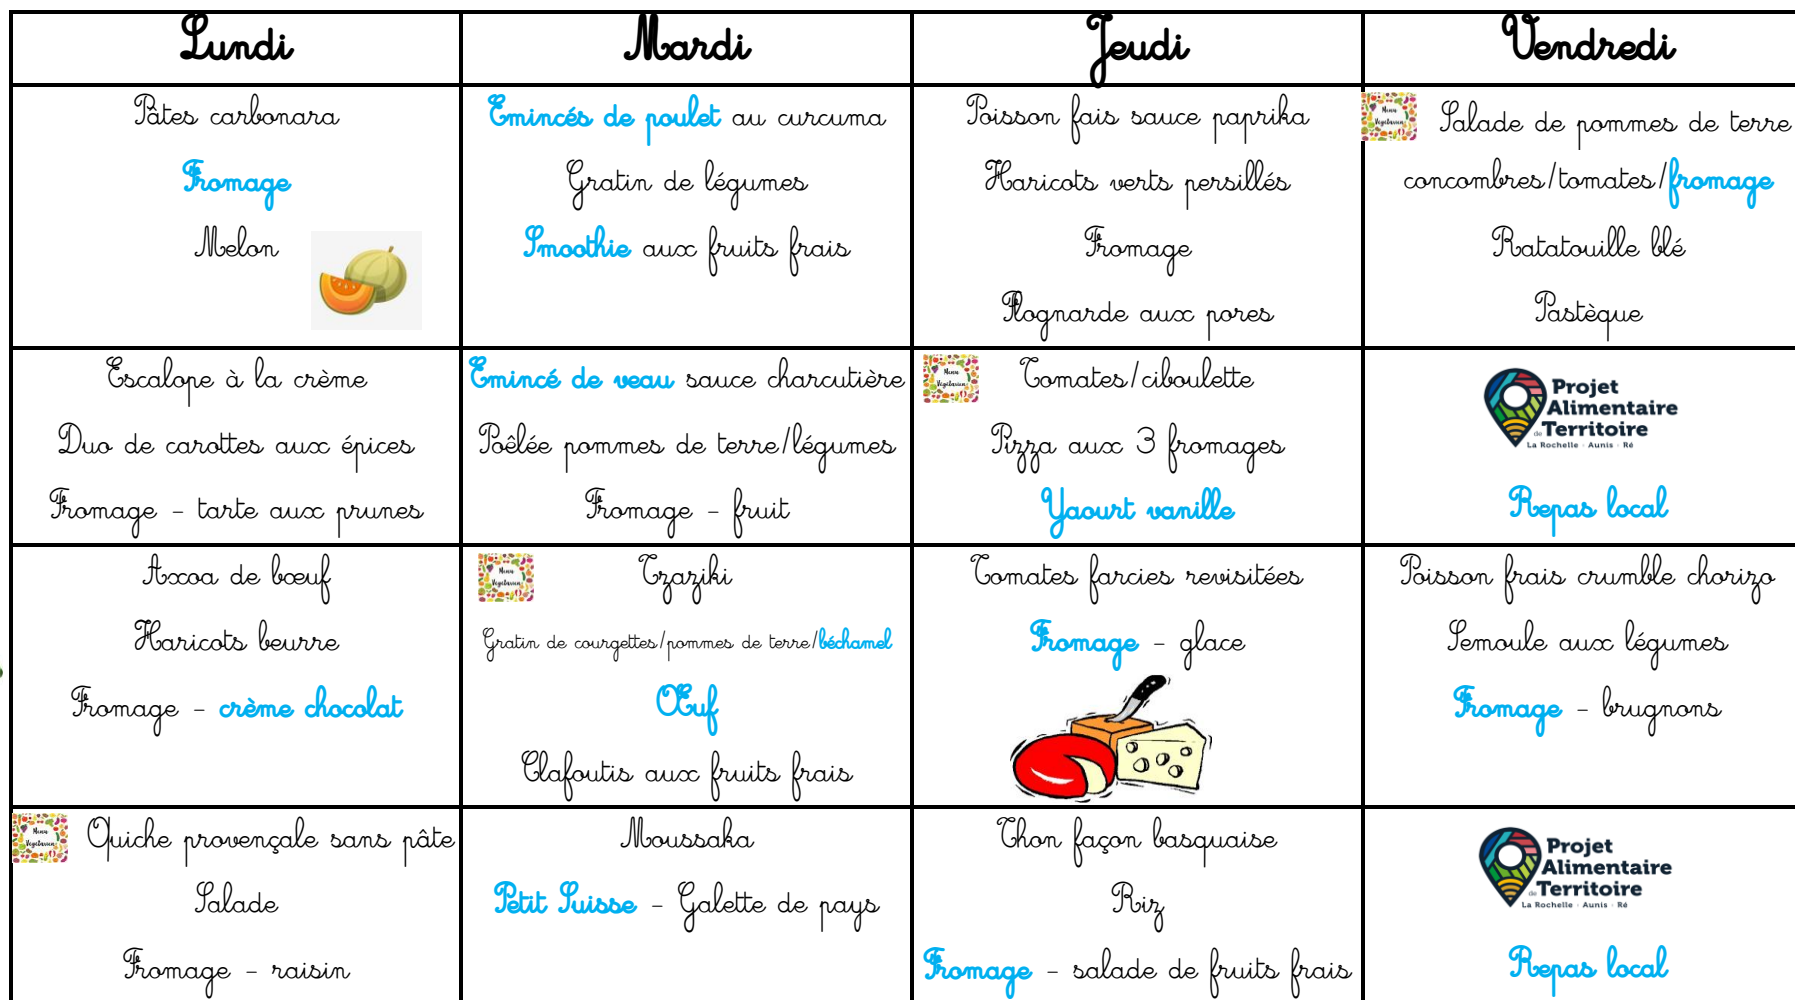 Lundi
Mardi
Jeudi
Vendredi
Pâtes carbonara
Fromage
Melon
Emincés de poulet au curcuma
Gratin de légumes
Smoothie aux fruits frais
Poisson fais sauce paprika
Haricots verts persillés
Fromage
Flognarde aux pores
Menu
Végétarien
Salade de pommes de terre
concombres/tomates/fromage
Ratatouille blé
Pastèque
Escalope à la crème
Duo de carottes aux épices
Fromage - tarte aux prunes
Emincé de veau sauce charcutière
Poêlée pommes de terre/légumes
Fromage - fruit
Menu
Végétarien
Tomates/ciboulette
Pizza aux 3 fromages
Yaourt vanille
Projet
Alimentaire
de Territoire
La Rochelle · Aunis · Ré
Repas local
Axoa de bœuf
Haricots beurre
Fromage - crème chocolat
Menu
Végétarien
Tzaziki
Gratin de courgettes/pommes de terre/béchamel
Œuf
Clafoutis aux fruits frais
Tomates farcies revisitées
Fromage - glace
Poisson frais crumble chorizo
Semoule aux légumes
Fromage - brugnons
Menu
Végétarien
Quiche provençale sans pâte
Salade
Fromage - raisin
Moussaka
Petit Suisse - Galette de pays
Thon façon basquaise
Riz
Fromage - salade de fruits frais
Projet
Alimentaire
de Territoire
La Rochelle · Aunis · Ré
Repas local